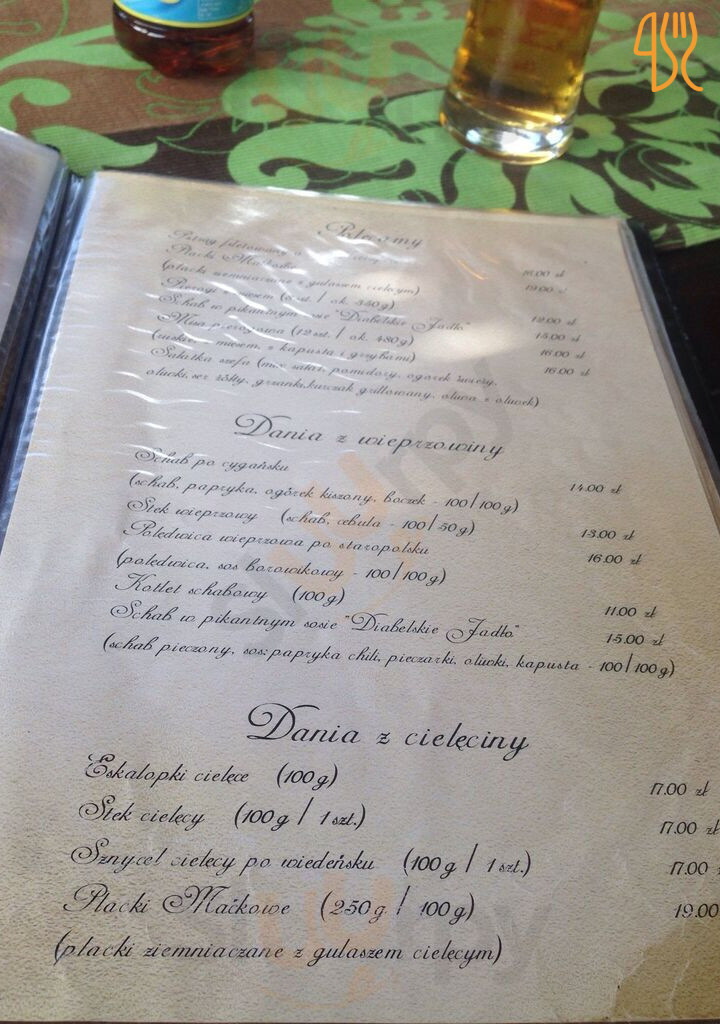 Polecamy
Pstrąg filetowany
Placki Maćkowe 16.00 zł
(placki ziemniaczane z gulaszem cielęcym) 19.00 zł
Pierogi z mięsem (8 szt. / ok. 350g)
Schab w pikantnym sosie "Diabelskie Jadło" 12.00 zł
Misa pierogowa (12 szt. / ok. 480g) 15.00 zł
(ruskie, z mięsem, z kapustą i grzybami) 16.00 zł
Sałatka szefa (mix sałat, pomidory, ogórek świeży, 16.00 zł
oliwki, ser żółty, grzanki, kurczak grillowany, oliwa z oliwek)
Dania z wieprzowiny
Schab po cygańsku
(schab, papryka, ogórek kiszony, boczek - 100/100g) 14.00 zł
Stek wieprzowy (schab, cebula - 100/50g) 13.00 zł
Polędwica wieprzowa po staropolsku 16.00 zł
(polędwica, sos borowikowy - 100/100g)
Kotlet schabowy (100g) 11.00 zł
Schab w pikantnym sosie "Diabelskie Jadło" 15.00 zł
(schab pieczony, sos: papryka chili, pieczarki, oliwki, kapusta - 100/100g)
Dania z cielęciny
Eskalopki cielęce (100g) 17.00 zł
Stek cielęcy (100g / 1 szt.) 17.00 zł
Sznycel cielęcy po wiedeńsku (100g / 1 szt.) 17.00
Placki Maćkowe (250g / 100g) 19.00
(placki ziemniaczane z gulaszem cielęcym)